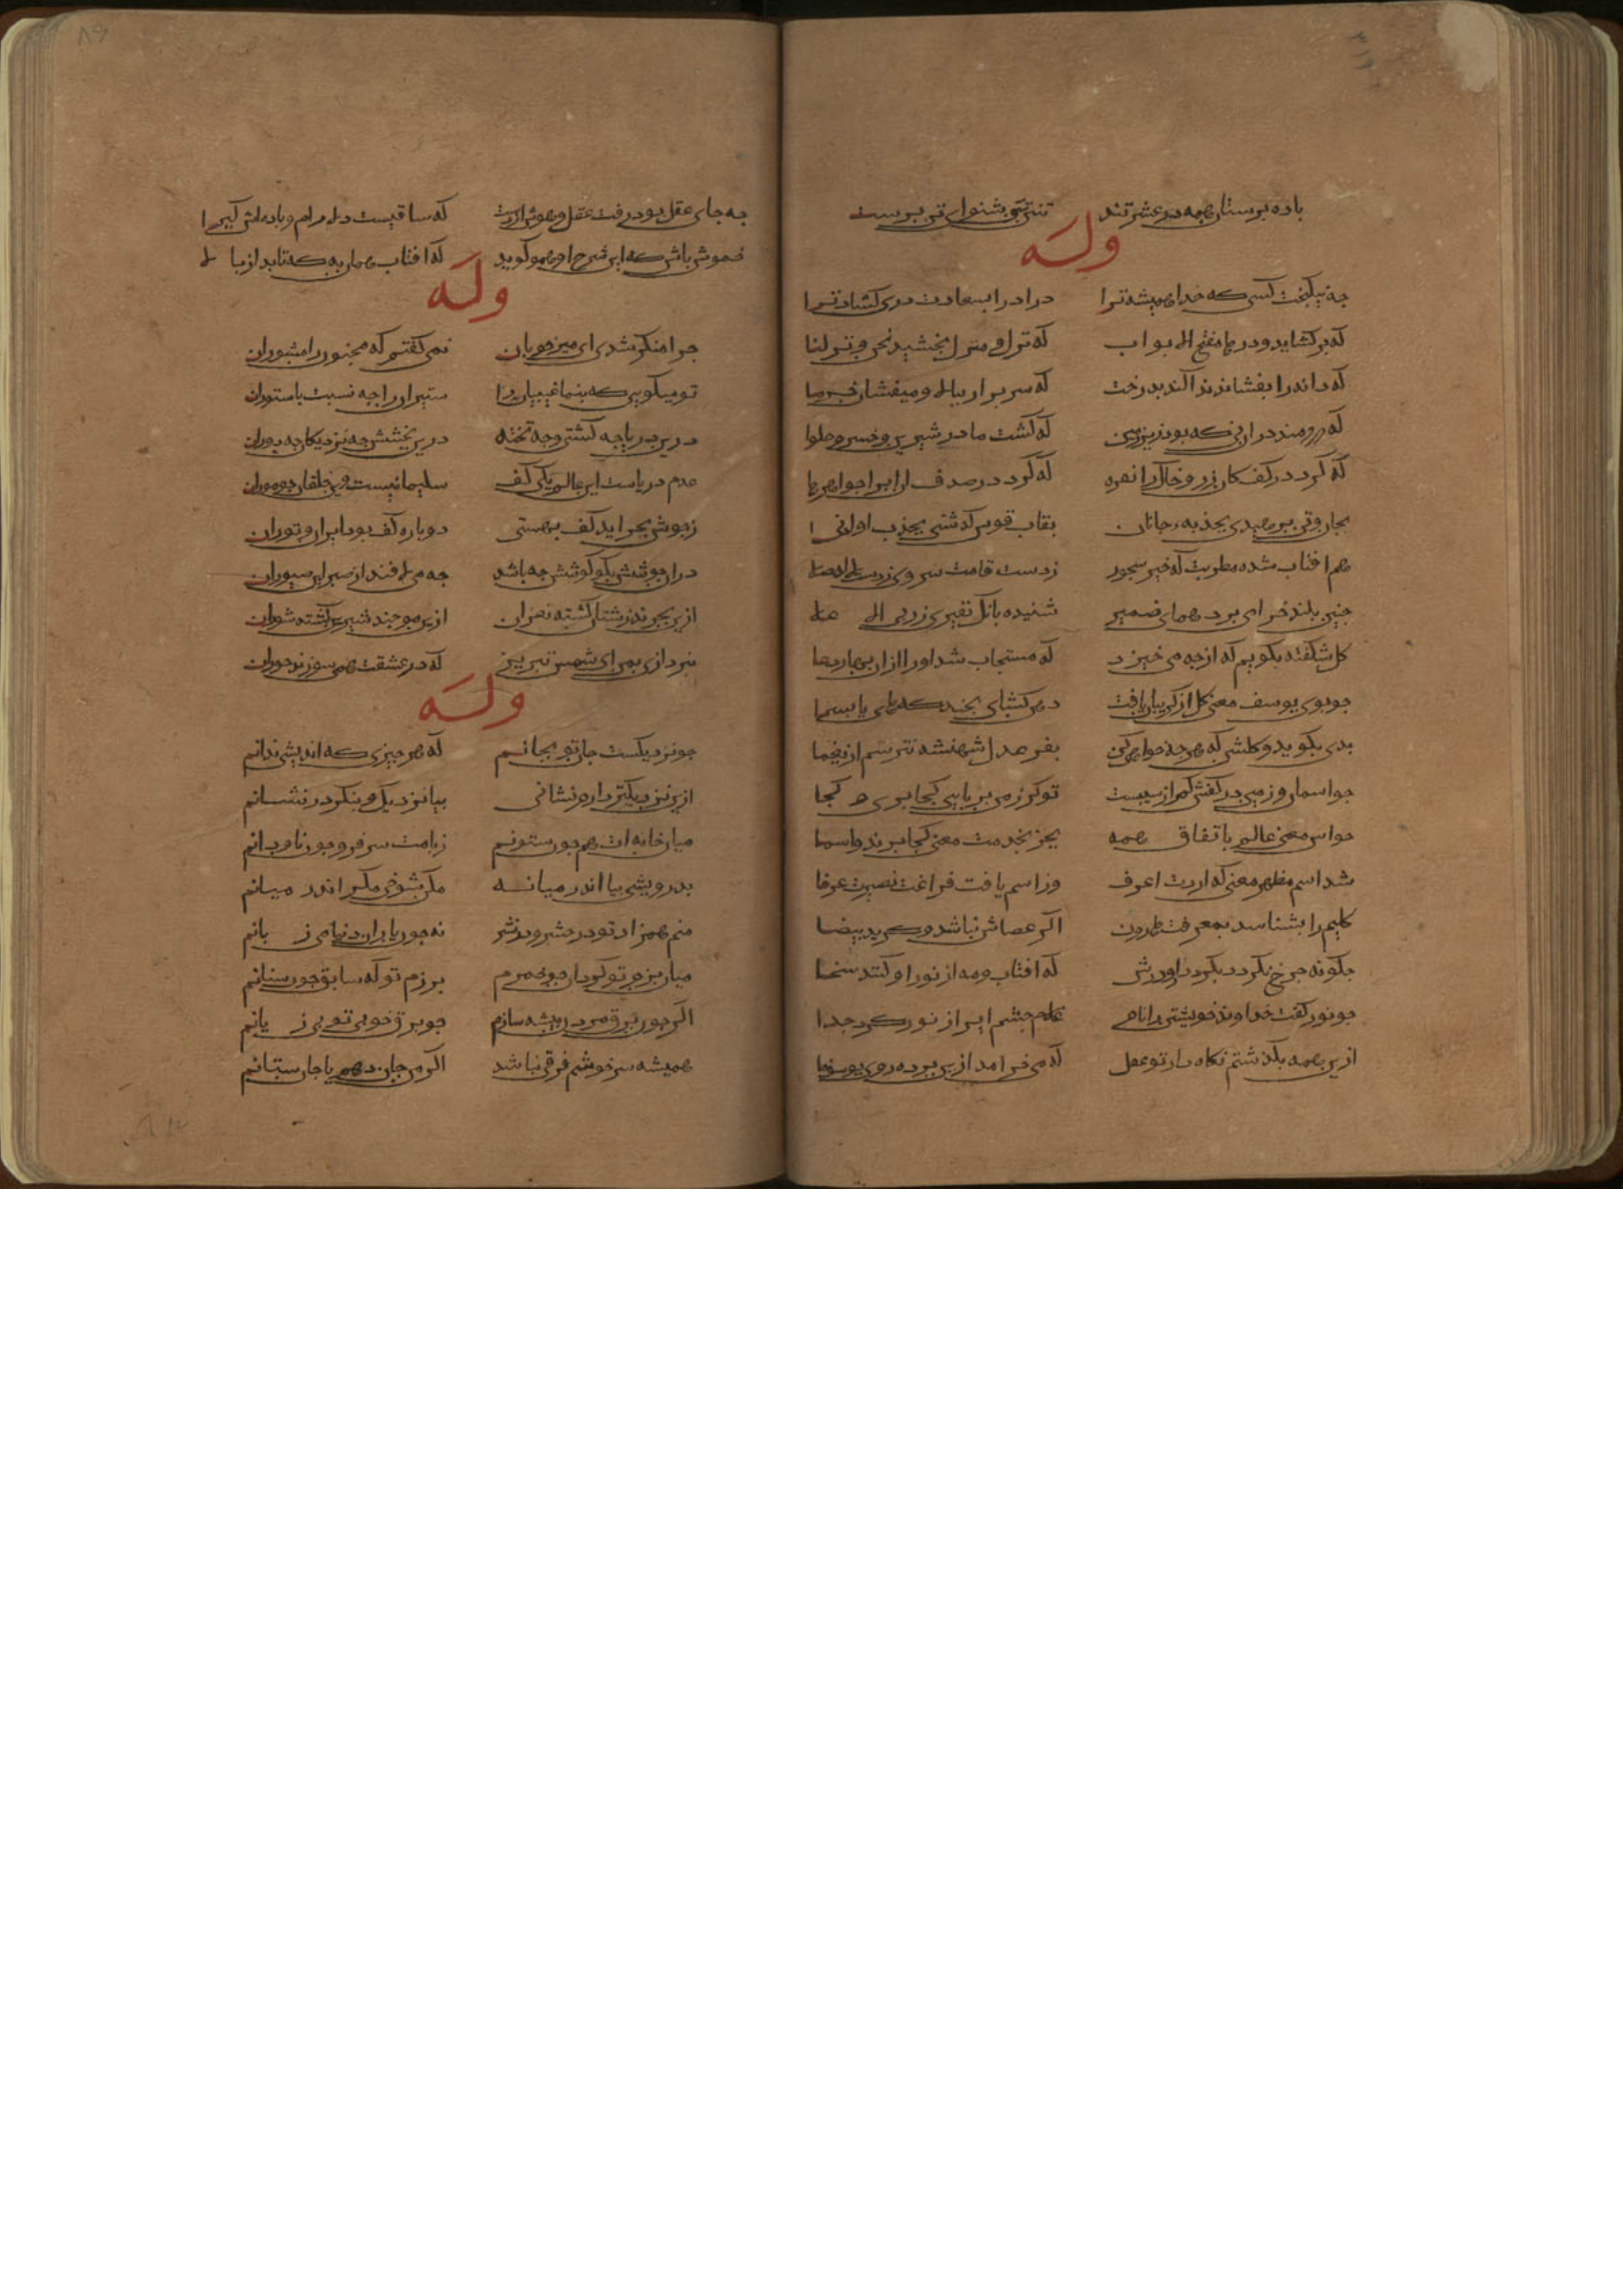 باده برستان همه در عشرتند تنتن تن شنوای تن برست
وله
چه نیکبخت کسی که خدا همیشه ترا درا درا بسعادت درت کشاد ترا
که برکشاید درها مفتح الابواب که نزل و منزل بخشید نحن نزلنا
که دانه را بفشاند ندا کند بدرخت که سر برار ببالا و میفشان خرما
که دردمید دران نی که بود زیر زمین که کشت مادر شیرین و خسرو حلوا
که کرد در کف کان زر و خاک را نقره که کرد در صدفی آب را جواهرها
بجان و تن برهیدی بجذبه جانان بقاب قوس کذشتی بجذب او ادنی
هم افتاب شده مطربت که خیز سجود
چنین بلند چرا می برد همای ضمیر شنیده بانک نفیری ز ربی الاعلی
کل شکفته بکویم که از چه می خندد که مستجاب شد او را ازان بهار دعا
جو بوی یوسف معنی کل از کریبان یافت دهن کشاد بخنده که های یا بشرا
بدی بکوید و کلشن که هر چه خواهی کن بفر عدل شهنشه نترسم از یغما
جو اسمان و زمین در کفش کم از سیبیست تو برک من بربایی کجا بری و کجا
جو اسم معنی عالم باتفاق همه بجز بخدمت معنی کجا برند اسما
شد اسم مظهر معنی که اردت اعرف وز اسم یافت فراغت بصیرت عرفا
کلیم را بشناسد بمعرفت هارون اکر عصاش نباشد و کر ید بیضا
چکونه چرخ نکردد بکرد بام و درش که افتاب و مه از نور او کنند سخا
جو نور کفت خداوند خویشتن را نام غلام چشم شو ایرا ز نور کرد جدا
ازین همه بکذشتم نکاه دار تو عقل که می خرامد ازین برده روی یوسف ما
چه جای عقل بود رفت عقل و هوش از دست که ساقیست دلارام و باده اش کیرا
خموش باش که این شرح او همو کوید که افتاب همان به که تابد از بالا
وله
چرا منکر شدی ای میر خوبان نمی کفتم که مجنون را مشوران
تو میکویی که بنما غیبیان را ستیران را چه نسبت با ستوران
درین دریا چه کشتی و چه تخته درین بخشش چه نزدیکان چه دوران
عدم دریاست این عالم یکی کف سلیمانیست وین خلقان چو موران
ز جوش بحر اید کف بهستی دو باره کف بود ایران و توران
دران جوشش بکو کوشش چه باشد چه می لافند از صبر این صبوران
ازین بحرند زشتان کشته نغزان ازین موجند شیرین کشته شوران
نبردازی بمن ای شمس تبریز که در عشقت همی سوزند حوران
وله
جو نزدیکست جان تو بجانم که هر چیزی که اندیشی ندانم
ازین نزدیکتر دارم نشانی بیا نزدیک و بنکر در نشانم
میان خانه ات همچون ستونم ز بامت سر فرو چون ناودانم
بدرویشی بیا اندر میانه مکن شوخی مکو اندر میانم
منم همزاد تو در حشر و در نشر نه چون یاران دنیا می زبانم
میان بزم تو کردان چو خمرم به رزم تو که سابق چون سنانم
اکر چون برق مردن بیشه سازم جو برق خوبی تو بی زبانم
همیشه سرخوشم فرقی نباشد اکر من جان دهم یا جان ستانم